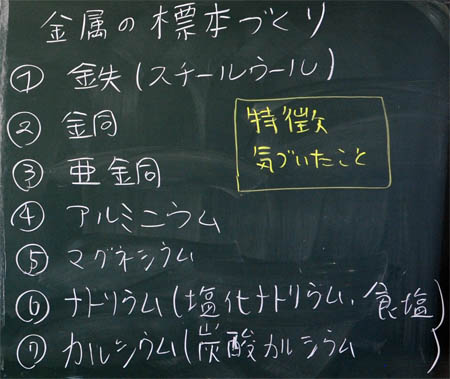 金属の標本づくり
① 鉄(スチールウール)
② 銅
③ 亜鉛
④ アルミニウム
⑤ マグネシウム
⑥ ナトリウム(塩化ナトリウム、食塩)
⑦ カルシウム(炭酸カルシウム)
特徴
気づいたこと